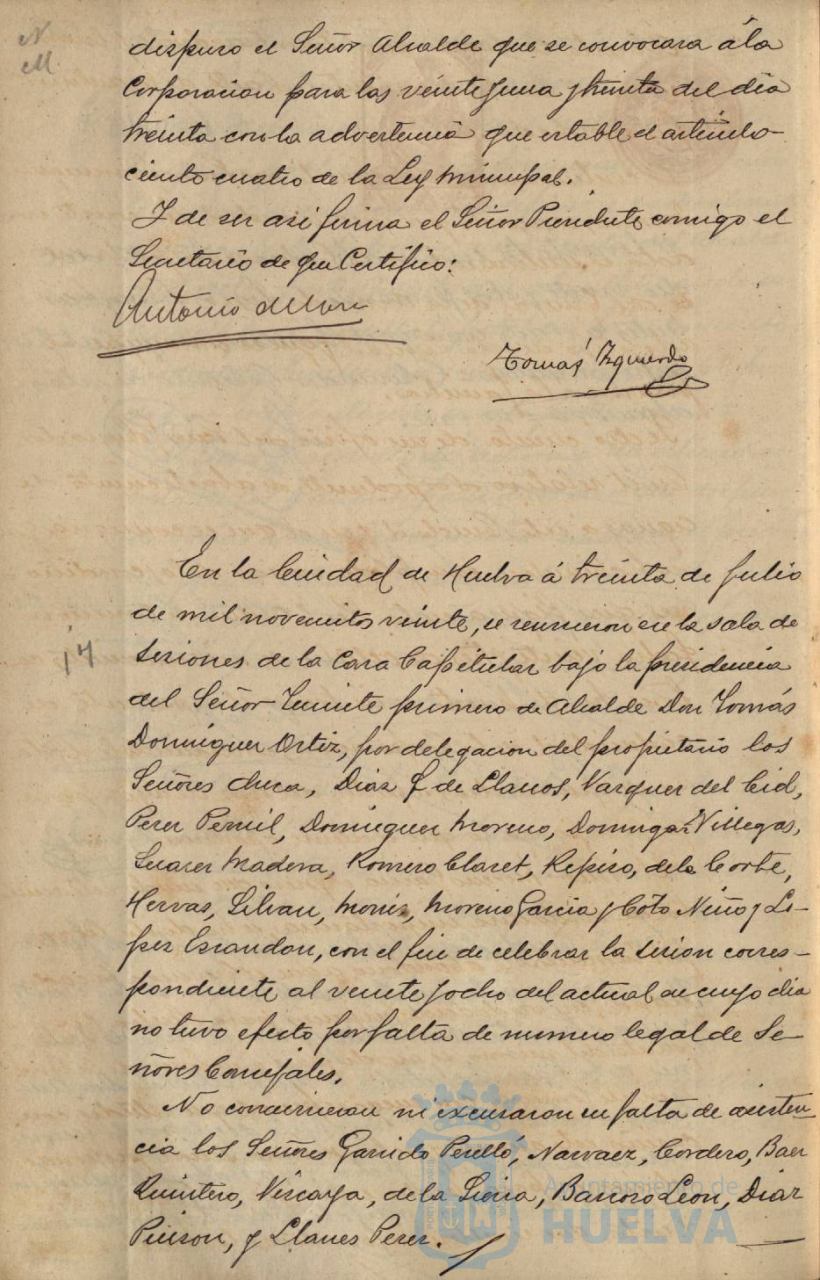 N
M
dispuso el Señor Alcalde que se convocara á la
Corporacion para las veinte y una y treinta del dia
treinta con la advertencia que estable el articulo
ciento cuatro de la Ley Municipal.
Y de ser asi firma el Señor Presidente comigo el
Secretario de que Certifico:
Antonio de Mora
Tomás Izquierdo
En la Ciudad de Huelva á treinta de Julio
de mil novecientos veinte, se reunieron en la sala de
17
sesiones de la Casa Capitular bajo la presidencia
del Señor Teniente primero de Alcalde Don Tomás
Dominguez Ortiz, por delegacion del propietario los
Señores Checa, Diaz F de Llanos, Vazquez del Cid,
Perez Pernil, Dominguez Moreno, Dominguez Villegas,
Suarez Madera, Romero Claret, Repiso, de la Corte,
Hervas, Silvan, Moriz, Moreno Garcia y Coto Niño y Lo-
pez Escandon, con el fin de celebrar la sesion corres-
pondiente al veinte y ocho del actual en cuyo dia
no tuvo efecto por falta de numero legal de Se-
ñores Concejales.
No concurrieron ni excusaron su falta de asisten-
cia los Señores Garrido Perelló, Narvaez, Cordero, Baez
Quintero, Viscaya, de la Sierra, Barroso Leon, Diaz
Pinzon, y Llanes Perez.
Ayuntamiento de
HUELVA